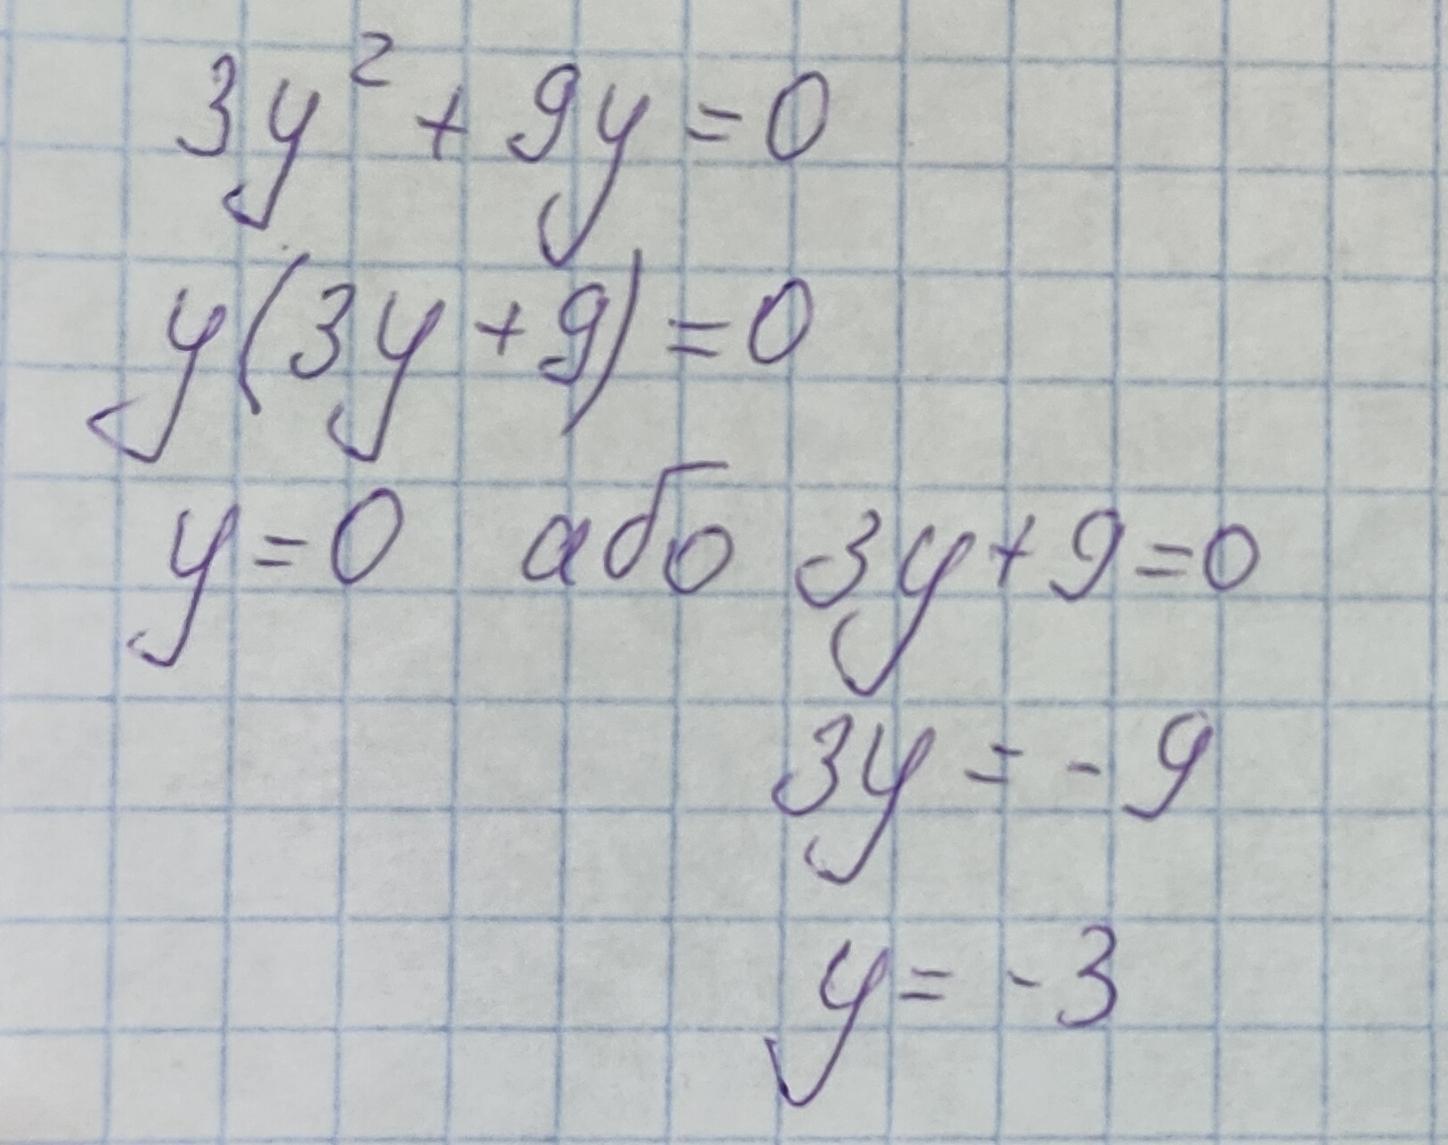 3y² + 9y = 0
y(3y + 9) = 0
y = 0 або 3y + 9 = 0
3y = - 9
y = - 3